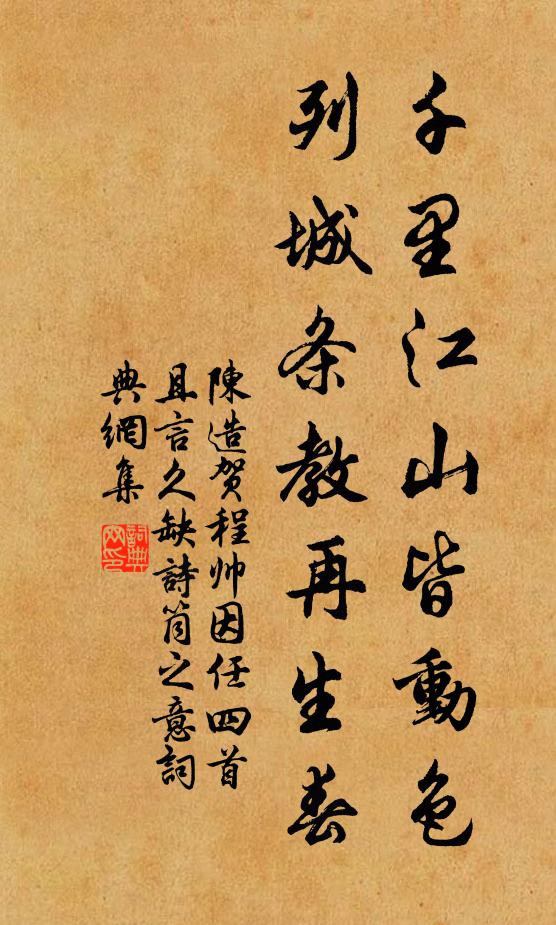 千里江山皆動色
列城条教再生春
陳造賀程帅因任四首
且言久缺詩筒之意詞
典網集
詞典
网印